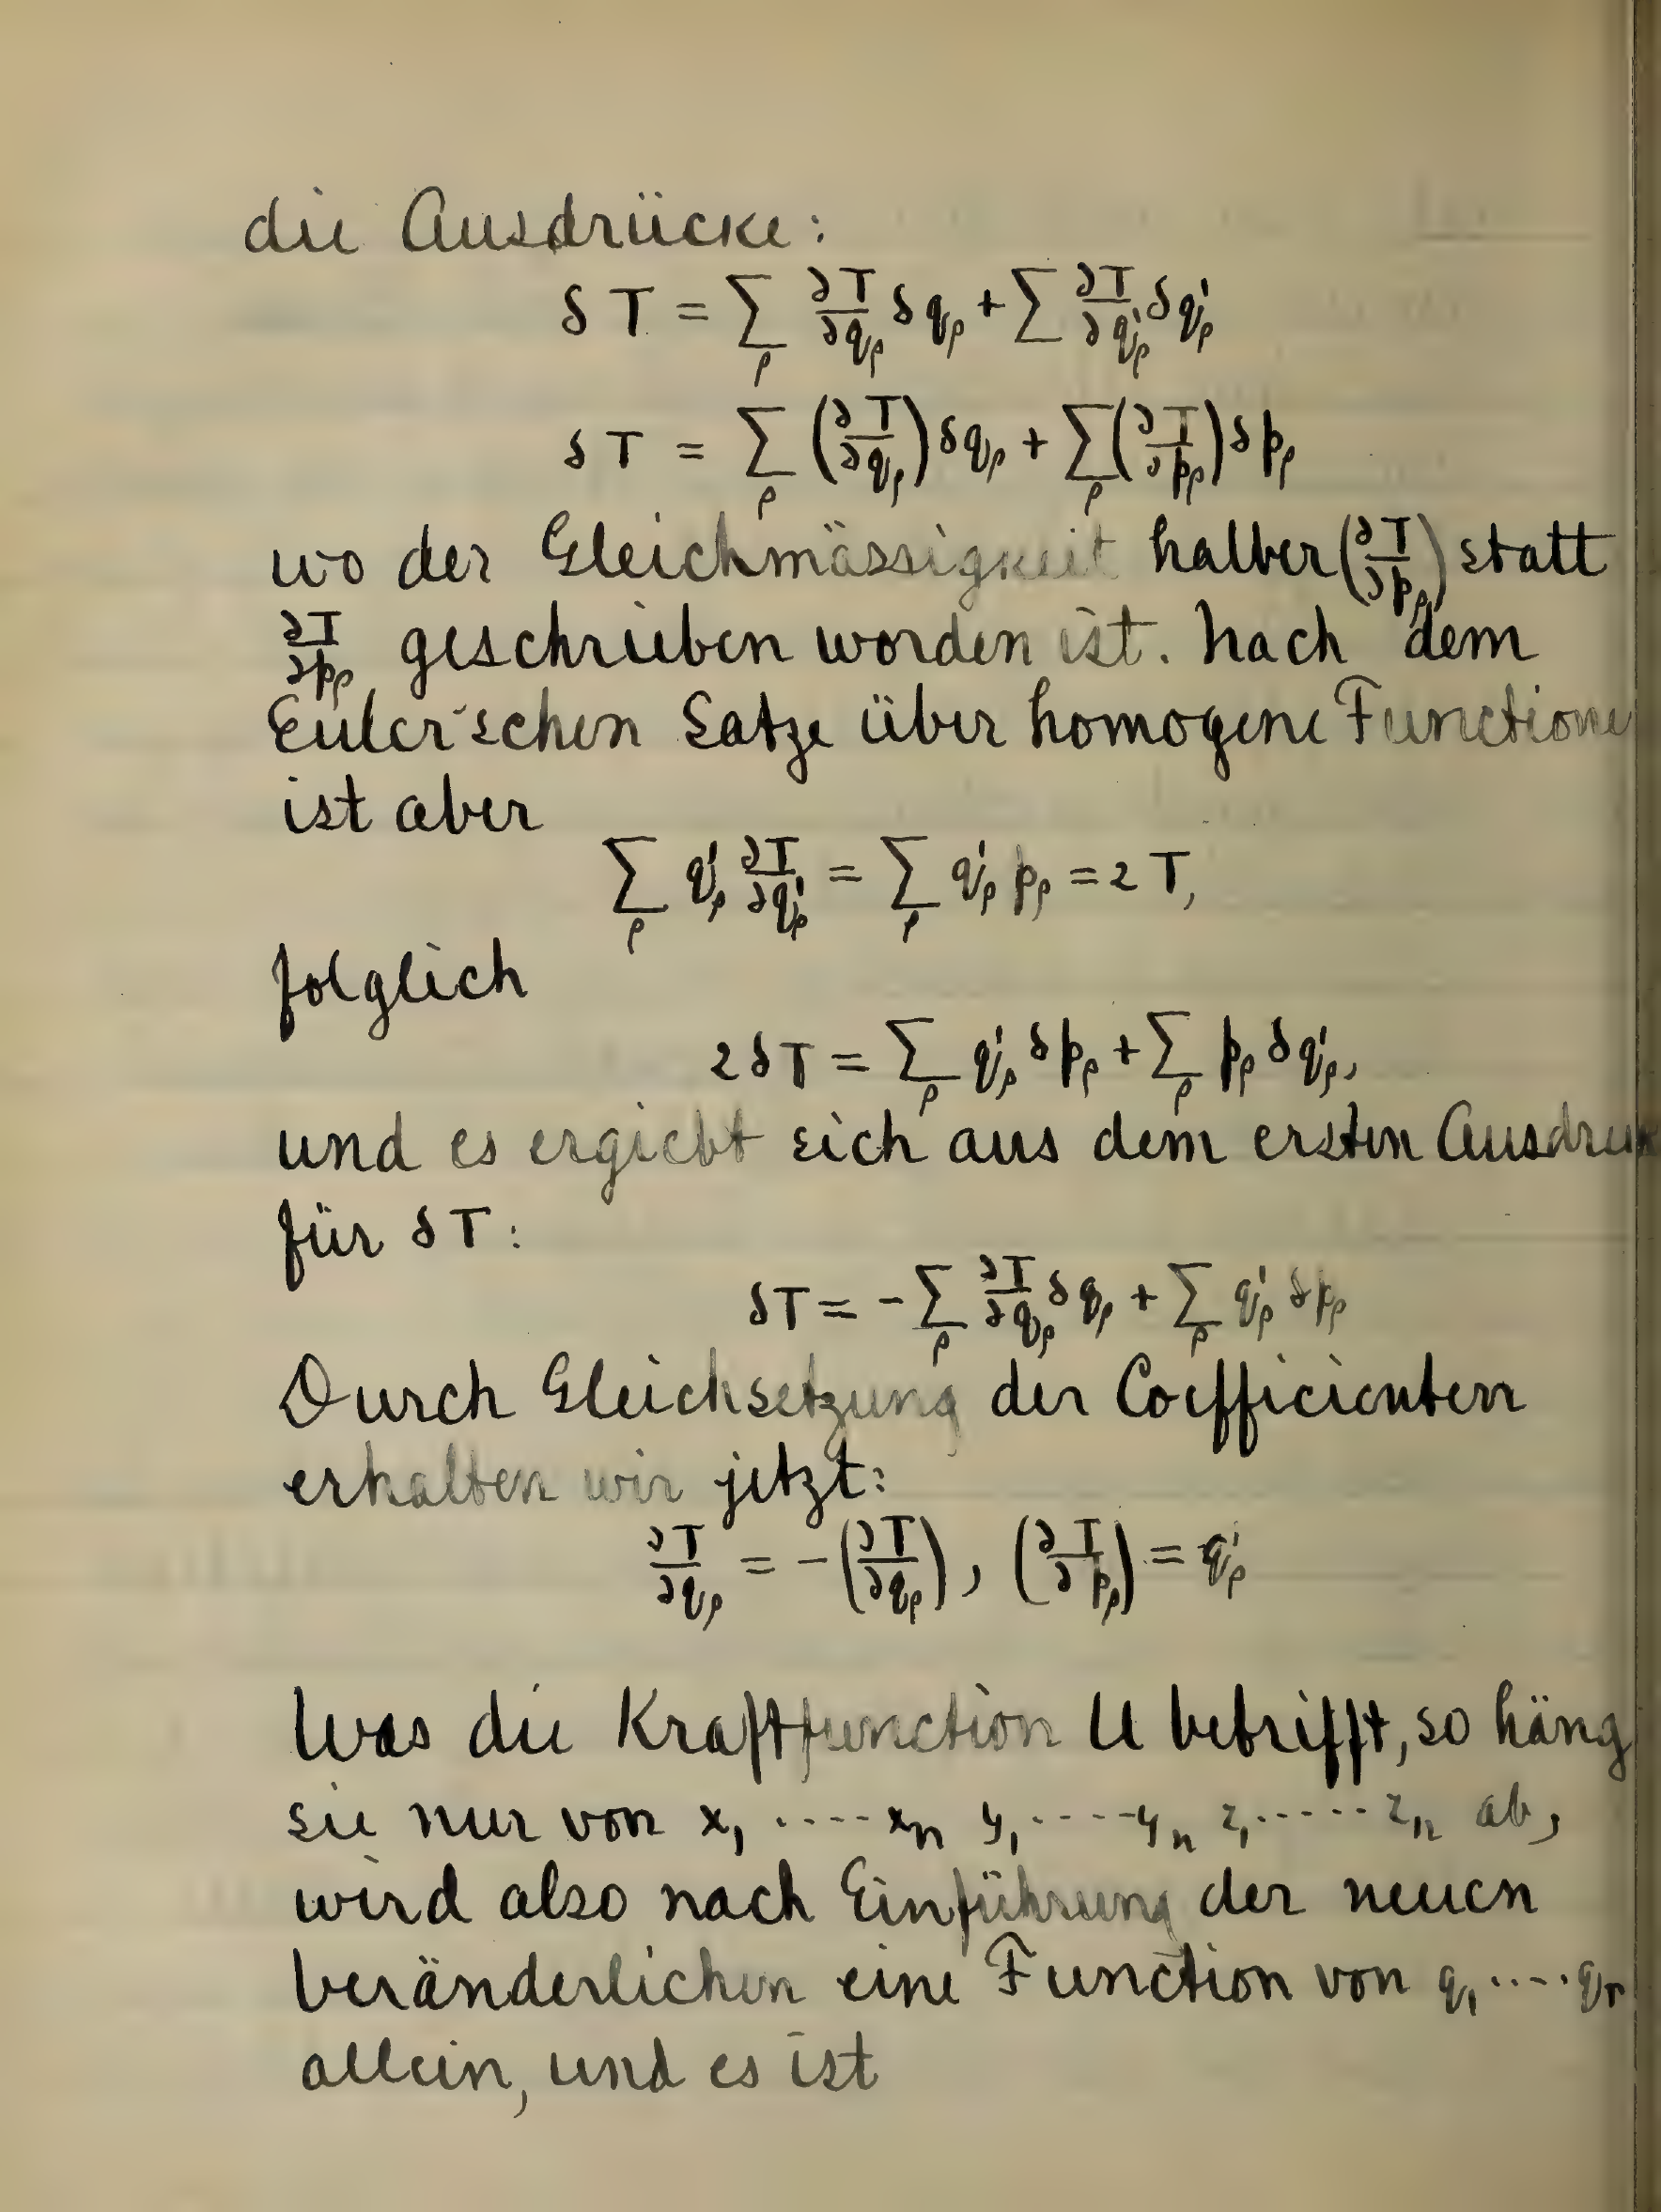 die Ausdrücke:
δT = ∑_ρ ∂T/∂q_ρ δq_ρ + ∑ ∂T/∂q'_ρ δq'_ρ
δT = ∑_ρ (∂T/∂q_ρ) δq_ρ + ∑_ρ (∂T/∂p_ρ) δp_ρ
wo der Gleichmässigkeit halber (∂T/∂p_ρ) statt
∂T/∂p_ρ geschrieben worden ist. Nach dem
Euler'schen Satze über homogene Functione
ist aber
∑_ρ q'_ρ ∂T/∂q'_ρ = ∑_ρ q'_ρ p_ρ = 2T,
folglich
2δT = ∑_ρ q'_ρ δp_ρ + ∑_ρ p_ρ δq'_ρ,
und es ergiebt sich aus dem ersten Ausdru
für δT:
δT = -∑_ρ ∂T/∂q_ρ δq_ρ + ∑_ρ q'_ρ δp_ρ
Durch Gleichsetzung der Coefficienten
erhalten wir jetzt:
∂T/∂q_ρ = -(∂T/∂q_ρ), (∂T/∂p_ρ) = q'_ρ
Was die Kraftfunction U betrifft, so häng
sie nur von x_1 ---- x_n y_1 ---- y_n z_1 ----- z_n ab,
wird also nach Einführung der neuen
Veränderlichen eine Function von q_1 ---- q_r
allein, und es ist